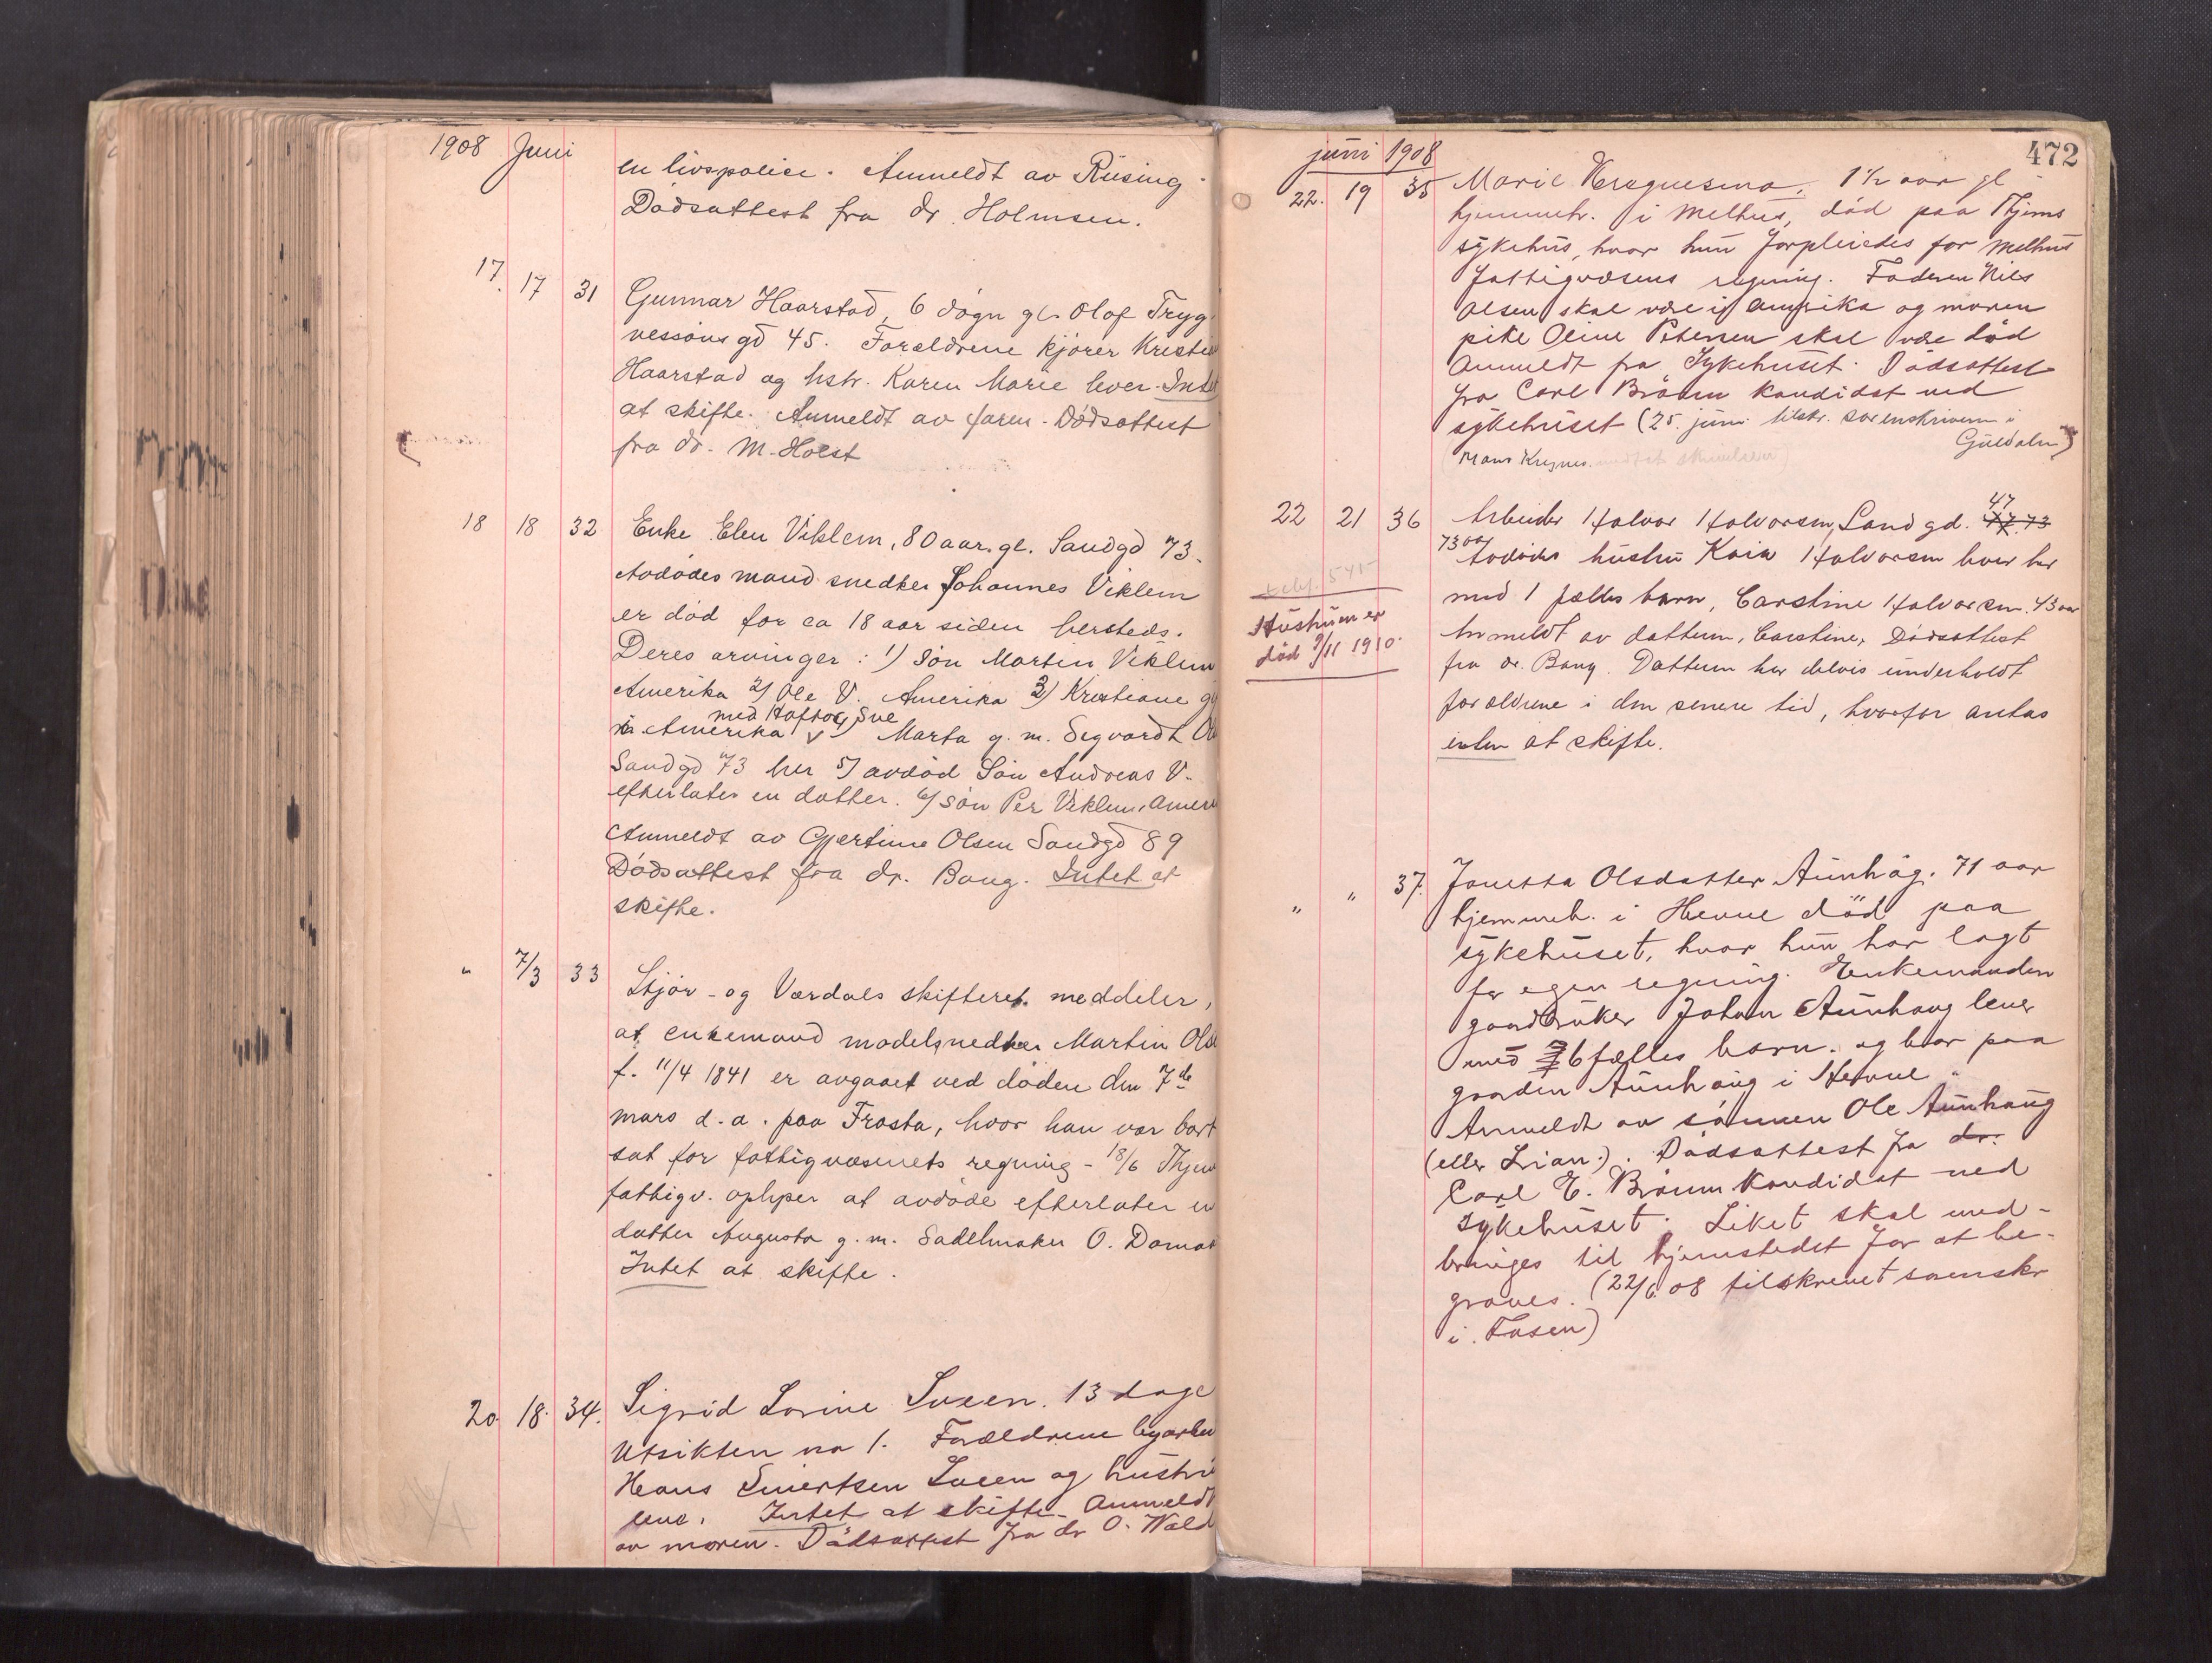 1908 Juni
en livspolise. Anmeldt av Riising.
Dødsattest fra dr. Holmsen.
17. 17 31 Gunnar Haarstad, 6 døgn gl. Olaf Tryg-
vessøns gd 45. Forældrene kjører Kristen
Haarstad og hstr. Karen Marie lever. Intet
at skifte. Anmeldt av faren. Dødsattest
fra dr. M. Holst
18 18 32 Enke Elen Viklem, 80 aar. gl. Sandgd 73.
Avdødes mand snedker Johannes Viklem
er død for ca 18 aar siden hersteds.
Deres arvinger: 1) Søn Martin Viklem
Amerika 2) Ole V. Amerika 3) Kristiane g
i Amerika Marta g. m. Segvardt Ol
Sandgd 73 her 5) avdød Søn Andreas V.
efterlater en datter. 6) Søn Per Viklem, Amer
Anmeldt av Gjertine Olsen Sandgd 89
Dødsattest fra dr. Bang. Intet at
skifte.
" 7/3 33 Stjør- og Værdals skifteret meddeler,
at enkemand modelsnedker Martin Ols
f. 11/4 1841 er avgaaet ved døden den 7de
mars d.a. paa Frosta, hvor han var bort
sat for fattigvæsenets regning - 18/6 Thjem
fattigv. oplyser at avdøde efterlater en
datter Augusta g. m. Sadelmaker O. Damas
Intet at skifte.
20. 18. 34. Sigrid Lovine Sveen. 13 dage
Utsikten no 1. Forældrene byarbei
Hans Sivertsen Sveen og hustru
leve. Intet at skifte. Anmeldt
av moren. Dødsattest fra dr O. Wald
472
juni 1908
22. 19 35 Marie 1½ aar gl
hjemmeh. i Melhus, død paa Thjems
sykehus, hvor hun forpleiedes for Melhus
fattigvæsens regning. Faderen Nils
Olsen skal være i Amerika og moren
pike Oline Petersen skal være død
Anmeldt fra Sykehuset. Dødsattest
fra Carl Bråum kandidat ved
sykehuset (25. juni tilskr. sorenskriveren i
Guldalen)
22 21 36 Arbeider Halvor Halvorsen, Sandgd. 47.
73 aar
Avdødes hustru Kaia Halvorsen lever her
med 1 fælles barn, Carstine Halvorsen. 43 aar
Anmeldt av datteren, Carstine, Dødsattest
fra dr. Bang. Datteren har delvis underholdt
forældrene i den senere tid, hvorfor antas
intet at skifte.
Hustruen er
død 9/11 1910.
" " 37. Jonetta Olsdatter Aunhaug. 71 aar
hjemmeh. i Hevne død paa
sykehuset, hvor hun har lagt
for egen regning. Enkemanden
gaardbruker Johan Aunhaug lever
med 6 fælles barn. og bor paa
gaarden Aunhaug i Hevne.
Anmeldt av sønnen Ole Aunhaug
(eller Lian). Dødsattest fra dr.
Carl E. Bråum kandidat ved
sykehuset. Liket skal med-
bringes til hjemstedet for at be-
graves. (22/6 08 tilskrevet sorenskr
i. Fosen)